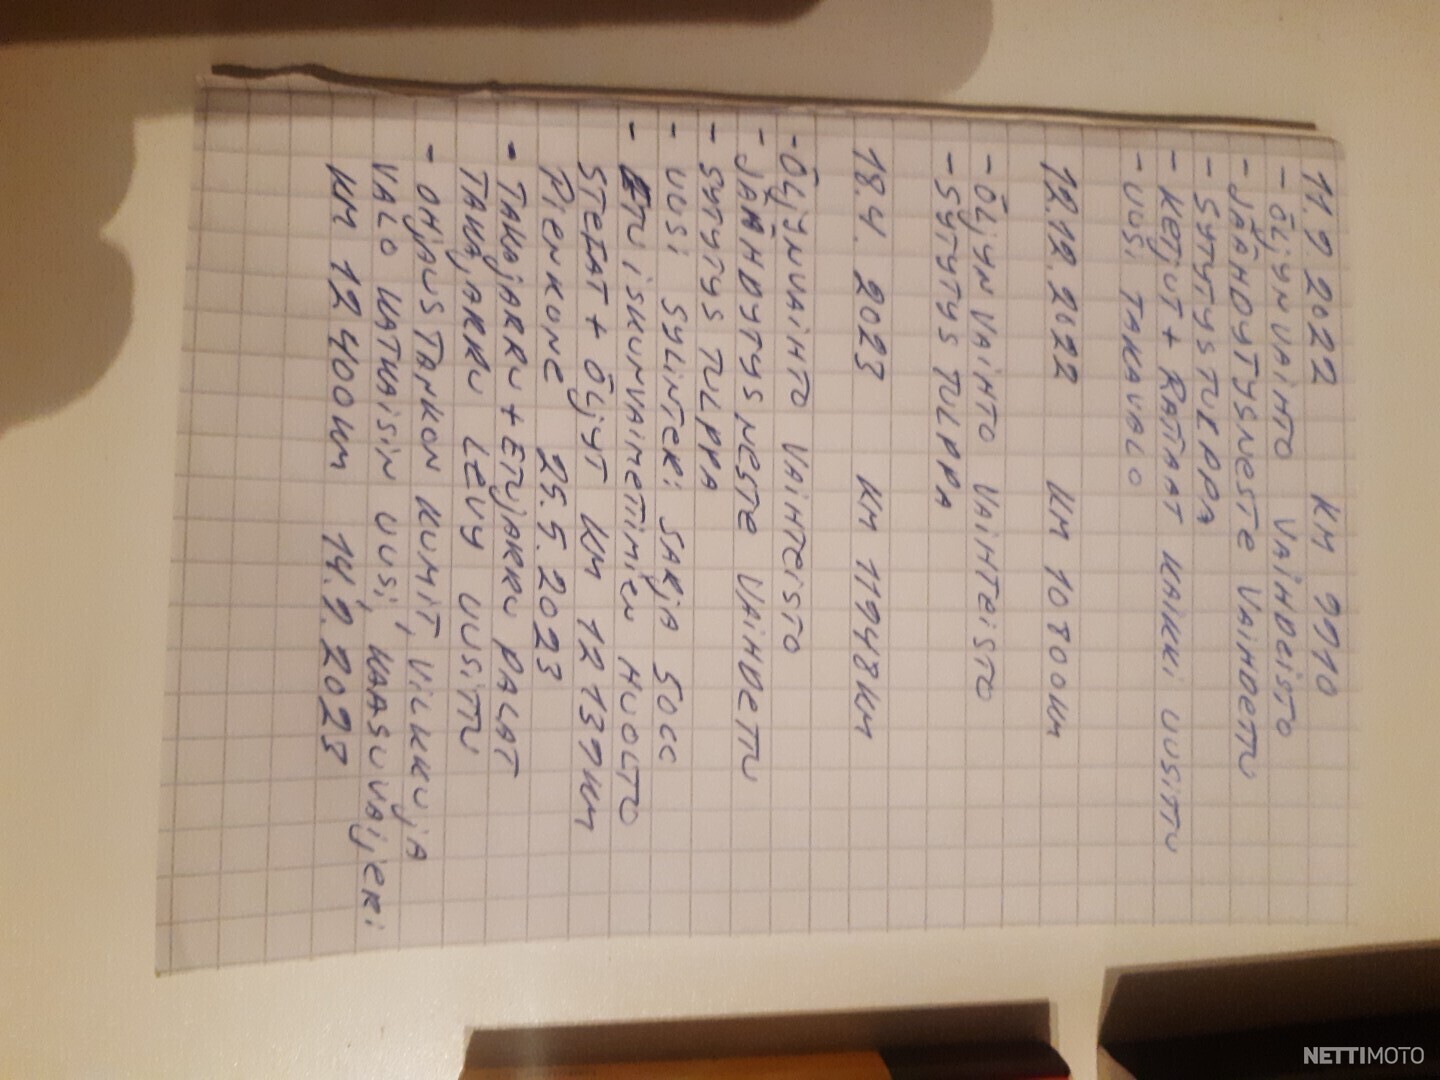 11.9.2022 KM 9910
- ÖLJYN VAIHTO VAIHDEISTO
- JÄÄHDYTYSNESTE VAIHDETTU
- SYTYTYSTULPPA
- KETJUT + RATTAAT KAIKKI UUSITTU
- UUSI TAKAVALO
12.12.2022 KM 10800KM
- ÖLJYN VAIHTO VAIHTEISTO
- SYTYTYS TULPPA
18.4.2023 KM 11948KM
- ÖLJYNVAIHTO VAIHTEISTO
- JÄÄHDYTYSNESTE VAIHDETTU
- SYTYTYS TULPPA
- UUSI SYLINTERI SARJA 50CC
- ETU ISKUNVAIMETTIMIEN HUOLTO
STEFAT + ÖLJYT KM 12139KM
PIENKONE 25.5.2023
- TAKAJARRU + ETUJARRU PALAT
TAKAJARRU LEVY UUSITTU
- OHJAUSTANKON KUMIT, VILKKUJA
VALO KATKAISIN UUSI, KAASUVAIJERI
KM 12400KM 14.9.2023
NETTIMOTO